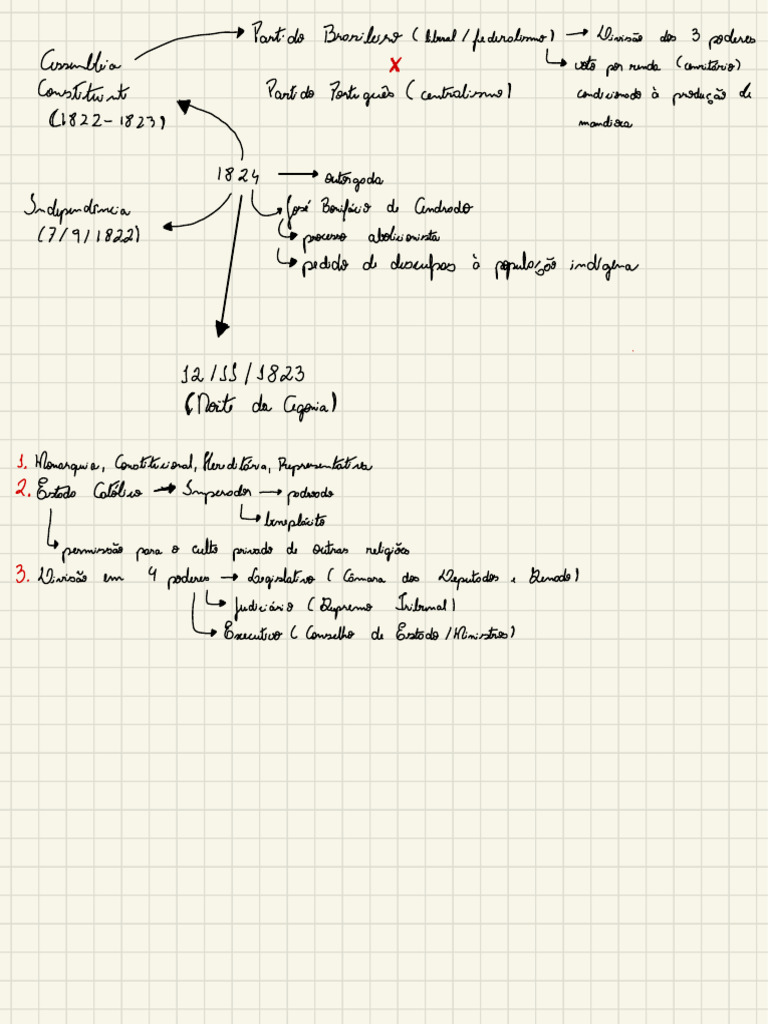 Partido Brasileiro (liberal/federalismo) → Divisão dos 3 poderes
Assembleia
Constituint
(1822-1823)
→ voto por renda (censitário)
condicionado à produção de
mandioca
X
Partido Português (centralismo)
1824 → outorgada
José Bonifácio de Andrada
→ processo abolicionista
→ pedido de desculpas à população indígena
Independência
(7/9/1822)
12/11/1823
(Noite da Agonia)
1. Monarquia, Constitucional, Hereditária, Representativa
2. Estado Católico → Imperador → padroado
→ beneplácito
→ permissão para o culto privado de outras religiões
3. Divisão em 4 poderes → Legislativo (Câmara dos Deputados e Senado)
→ Judiciário (Supremo Tribunal)
→ Executivo (Conselho de Estado/Ministros)